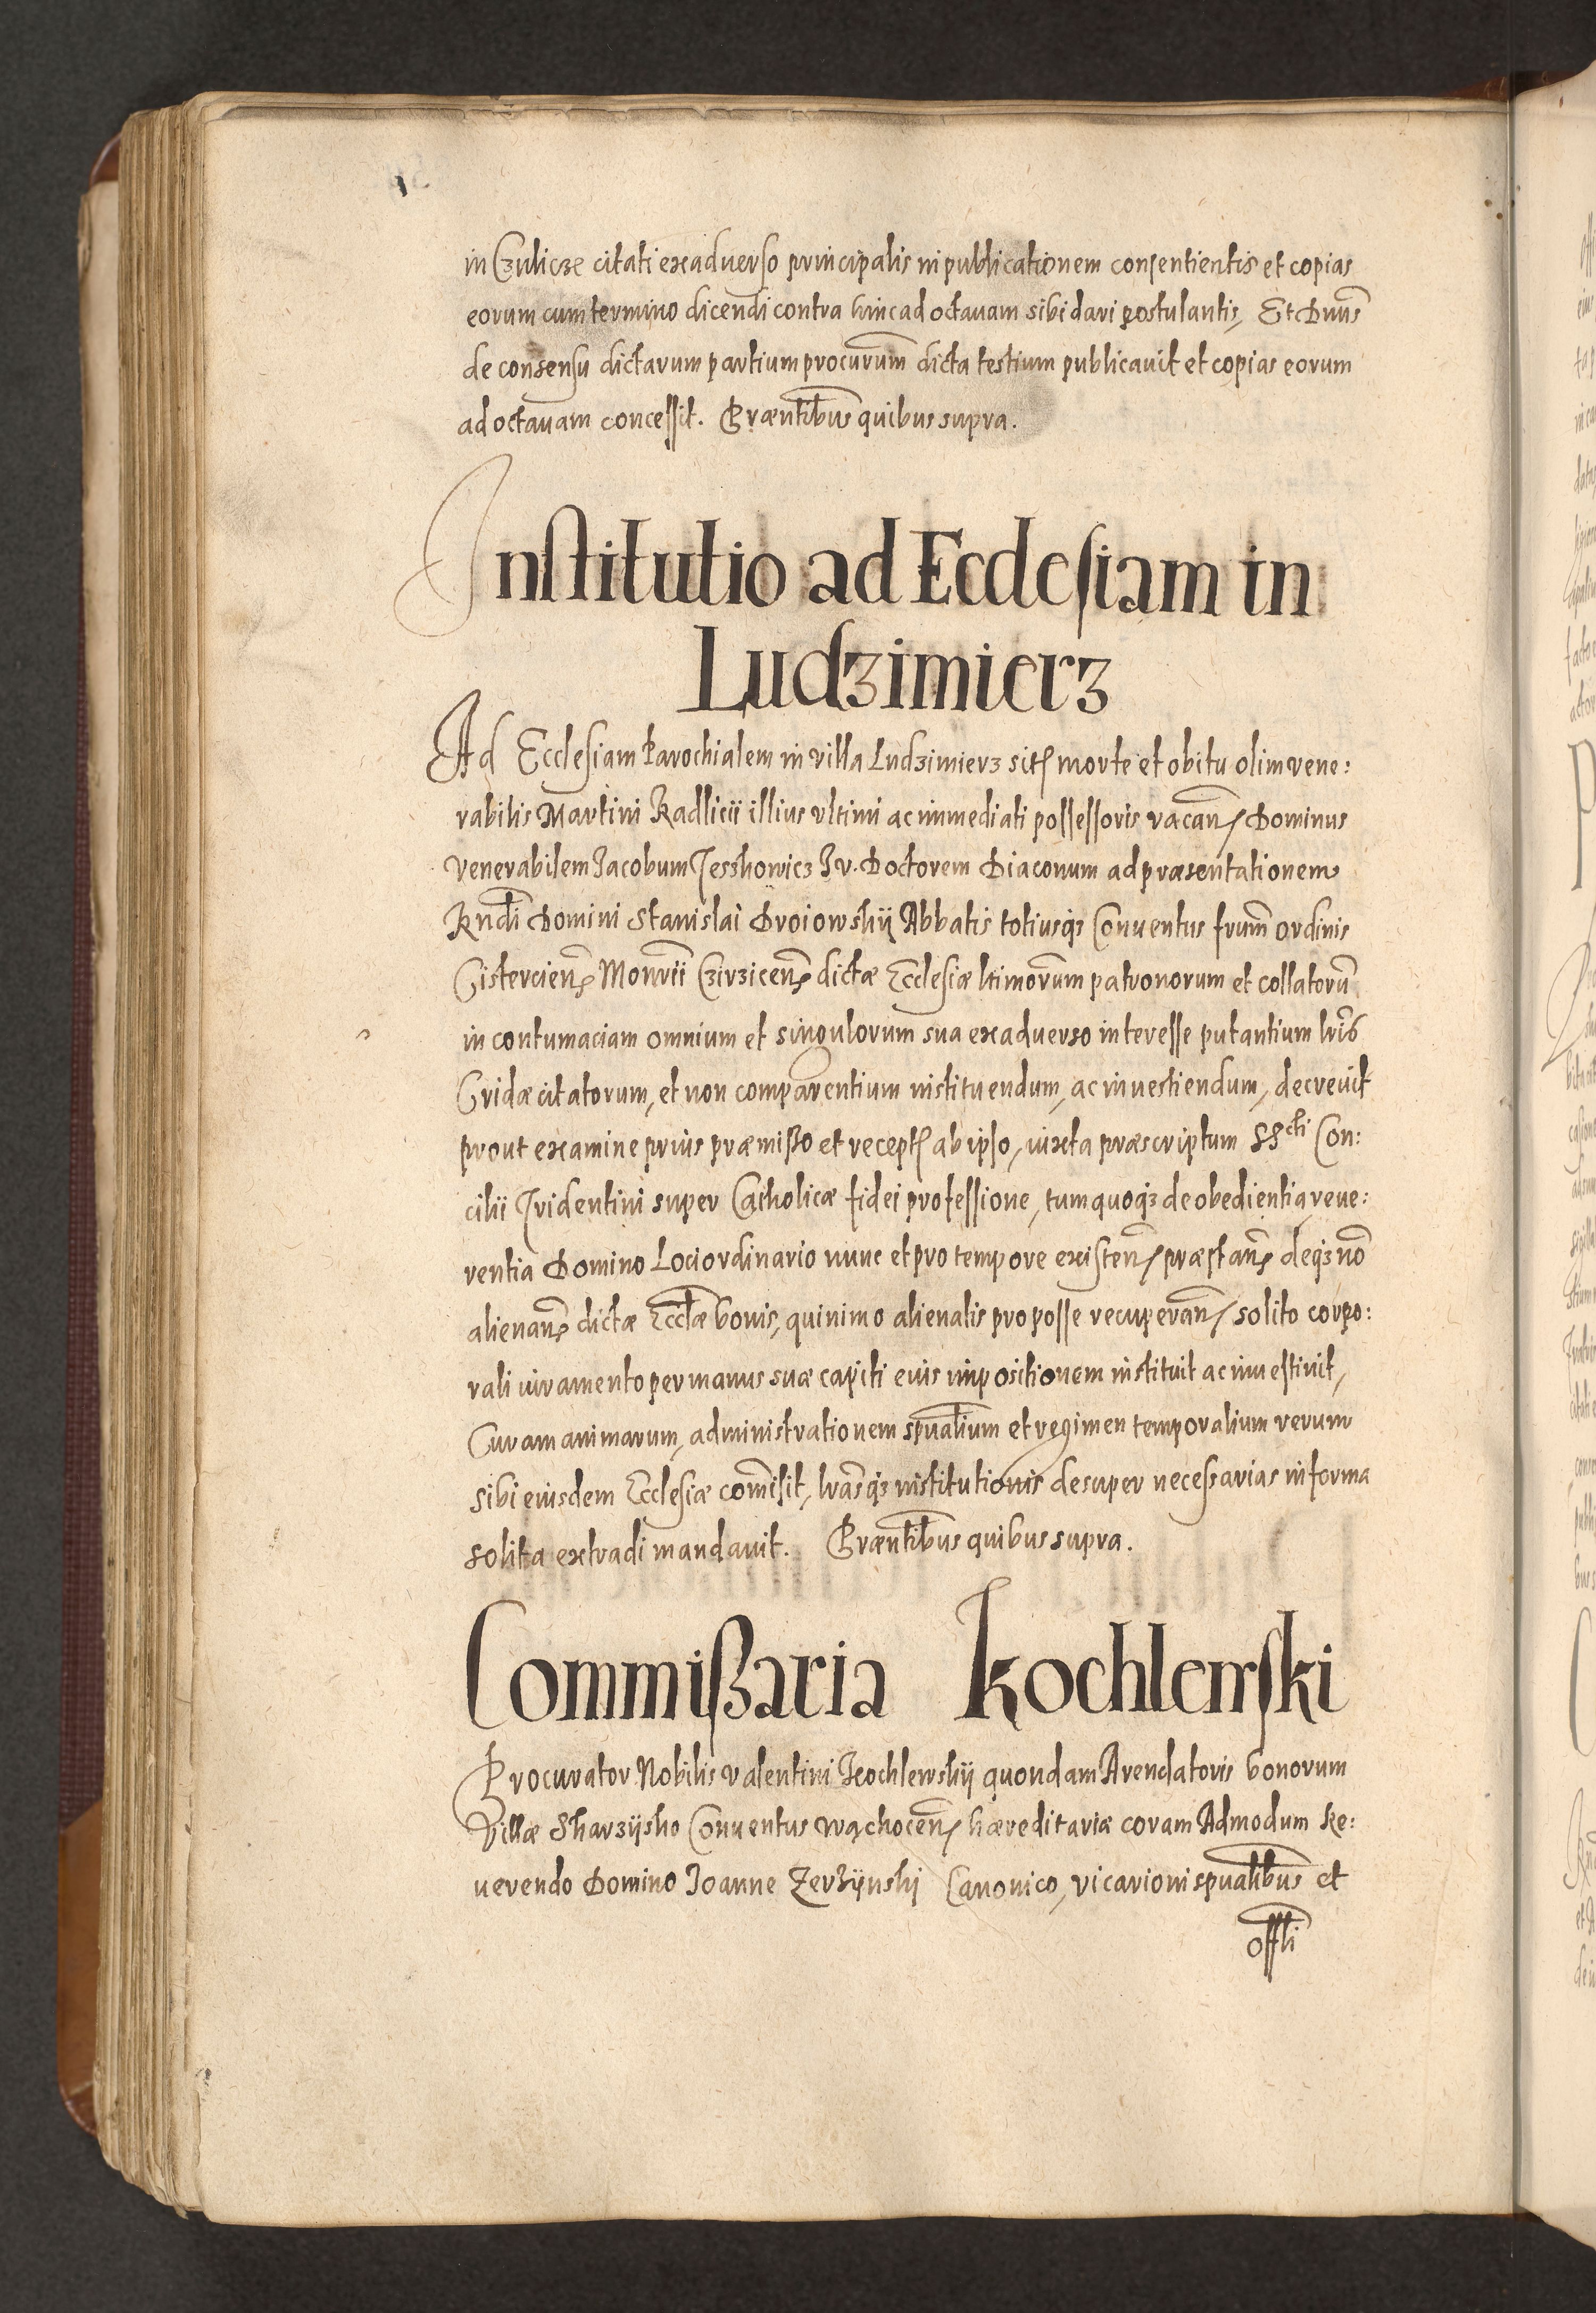 in Czulicze citati ex adverso principalis in publicationem consentientis et copias
eorum cum termino dicendi contra hinc ad octavam sibi dari postulantis, Et Dnus
de consensu dictarum partium procurum dicta testium publicavit et copias eorum
ad octavam concessit. Præntibus quibus supra.
Institutio ad Ecclesiam in
Ludzimierz
Ad Ecclesiam Parochialem in villa Ludzimierz sit morte et obitu olim vene:
rabilis Martini Radlicii illius ultimi ac immediati possessoris vacan Dominus
venerabilem Jacobum Jeszkowicz Iu. Doctorem Diaconum ad præsentationem
Rndi Domini Stanislai Droiowskij Abbatis totiusqz Conventus frum ordinis
Cistercien Monrii Czirzicen dictæ Ecclesiæ ltimorum patronorum et collatorũ
in contumaciam omnium et singulorum sua ex adverso interesse putantium lris
Cridæ citatorum, et non comparentium instituendum, ac investiendum, decrevit
prout examine prius præmisso et recept ab ipso, iuxta præscriptum SScti Con:
cilii Tridentini super Catholicæ fidei professione, tum quoqz de obedientia, reve:
rentia Domino Loci ordinario nunc et pro tempore existen præstan deqz nõ
alienan dictæ Ecclæ bonis, quinimo alienatis pro posse recuperan solito corpo:
rali iuramento per manus suæ capiti eius impositionem instituit ac investivit,
Curam animarum, administrationem spualium et regimen temporalium rerum
sibi eiusdem Ecclesiæ comisit, lrasqz institutionis desuper necessarias in forma
solita extradi mandavit. Præntibus quibus supra.
Commissaria Kochlewski
Procurator Nobilis Valentini Kochlewskij quondam Arendatoris bonorum
Villæ Skarzijsko Conventus Wąchocen hæreditariæ coram Admodum Re:
verendo Domino Joanne Zerzijnskj Canonico, vicario in spualibus et
offli